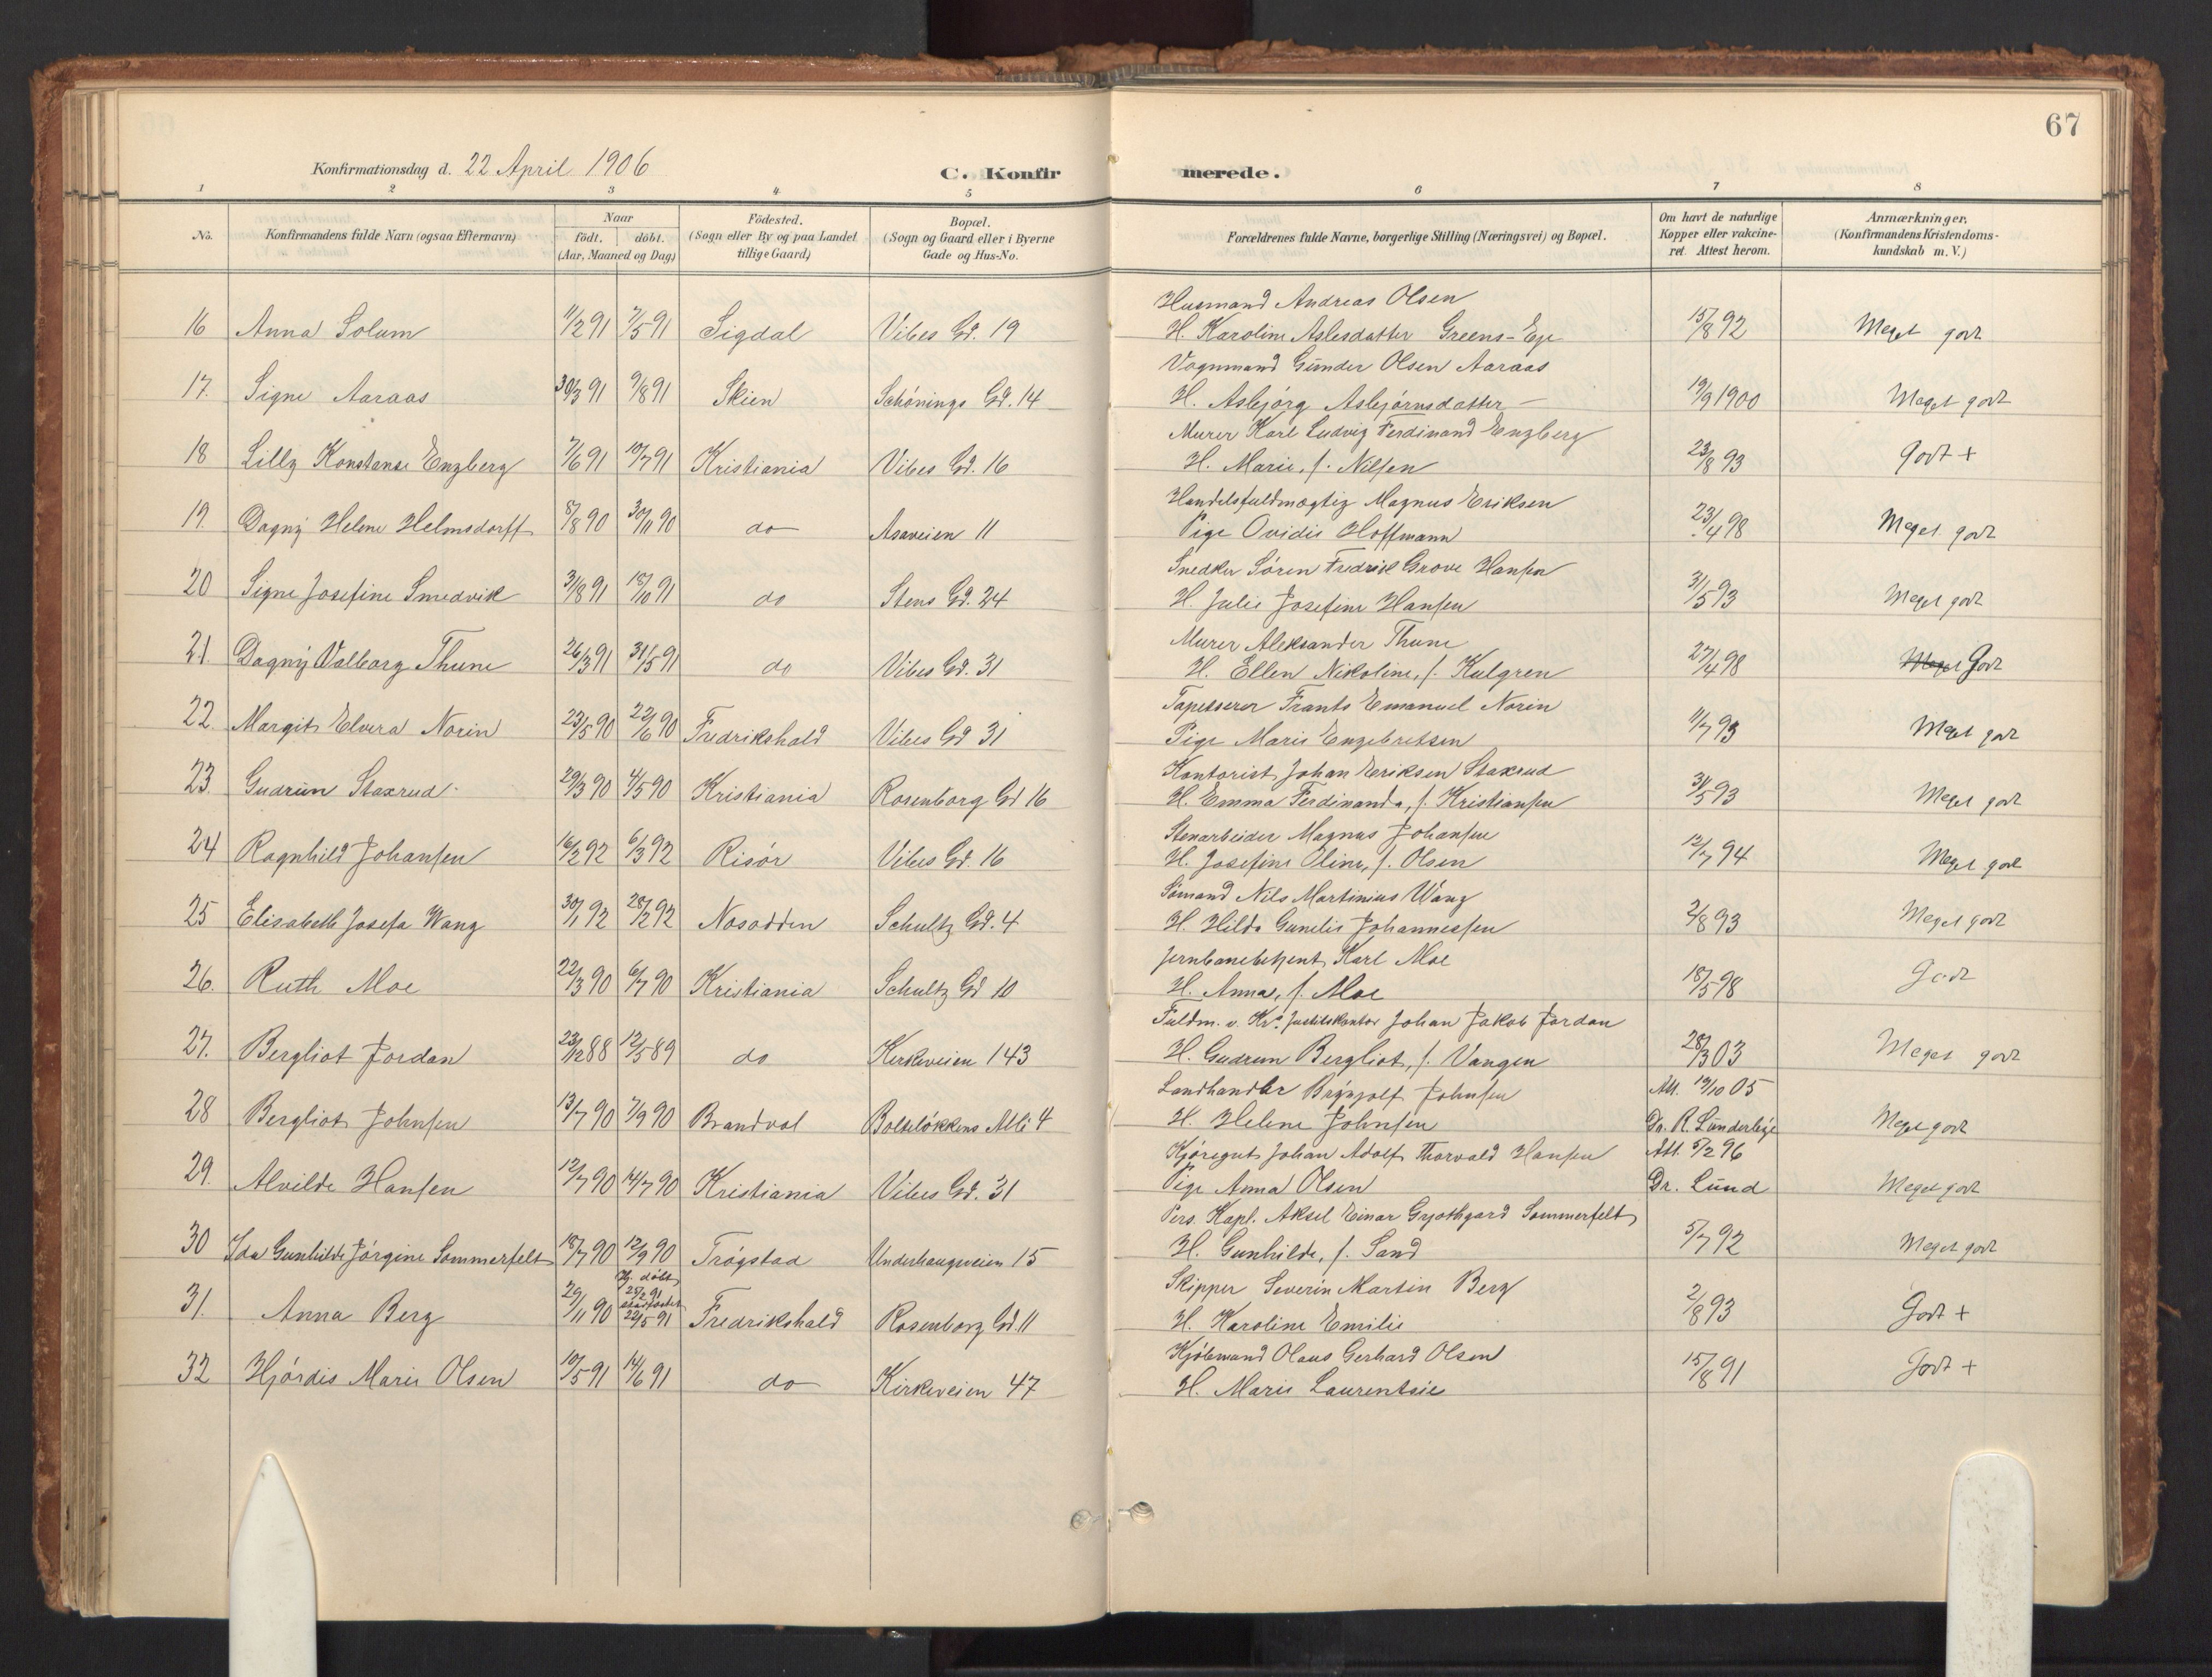 67
Konfirmationsdag d. 22 April 1906 C. Konfirmerede.
1 2 3 4 5 6 7 8
No. Konfirmandens fulde Navn (ogsaa Efternavn) Naar födt. döbt. (Aar, Maaned og Dag) Födested. (Sogn eller By og paa Landet tillige Gaard) Bopæl. (Sogn og Gaard eller i Byerne Gade og Hus-No. Forældrenes fulde Navne, borgerlige Stilling (Næringsvei) og Bopæl. Om havt de naturlige Kopper eller vakcineret. Attest herom. Anmærkninger. (Konfirmandens Kristendomskundskab m. V.)
Husmand Andreas Olsen
16 Anna Solum 11/2 91 7/5 91 Sigdal Vibes Gd. 19 H. Karoline Aslesdatter Greens-Eje 15/8 92 Meget godt
Vognmand Gunder Olsen Aaraas
17. Signe Aaraas 30/3 91 9/8 91 Skien Schönings Gd. 14 H. Asbjörg Asbjörnsdatter — 19/9 1900 Meget godt
Murer Karl Ludvig Ferdinand Enzberg
18 Lilly Konstanse Enzberg 7/6 91 19/7 91 Kristiania Vibes Gd. 16 H. Marie, f. Nilsen 23/8 93 Godt +
Handelsfuldmægtig Magnus Eriksen
19. Dagny Helene Helmsdorff 8/8 90 30/11 90 do Asaveien 11 Pige Ovidie Hoffmann 23/4 98 Meget godt
Snedker Sören Fredrik Grove Hansen
20 Signe Josefine Smedvik 31/8 91 18/10 91 do Stens Gd. 24 H. Julie Josefine Hansen 31/5 93 Meget godt
Murer Aleksander Thune
21. Dagny Valborg Thune 26/3 91 31/5 91 do Vibes Gd. 31 H. Ellen Nikoline, f. Kulgren 27/4 98 Meget Godt
Tapetserer Frants Emanuel Norin
22. Margit Elvera Norin 23/5 90 22/6 90 Fredrikshald Vibes Gd 31 Pige Marie Engebretsen 11/7 93 Meget godt
Kontorist Johan Eriksen Staxrud
23. Gudrun Staxrud 29/3 90 4/5 90 Kristiania Rosenborg Gd 16 H. Emma Ferdinanda, f. Kristiansen 31/5 93 Meget godt
Stenarbeider Magnus Johansen
24 Ragnhild Johansen 16/2 92 6/3 92 Risör Vibes Gd. 16 H. Josefine Oline, f. Olsen 12/7 94 Meget godt
Sömand Nils Martinius Wang
25 Elisabeth Josefa Wang 30/1 92 28/2 92 Nesodden Schultz Gd. 4 H. Hilda Gunelie Johannessen 2/8 93 Meget godt
Jernbanebetjent Karl Moe
26. Ruth Moe 22/3 90 6/7 90 Kristiania Schultz Gd 10 H. Anna, f. Moe 18/5 98 Godt
Fuldm. v. Kr.a Justitskontor Johan Jakob Jordan
27. Bergliot Jordan 23/12 88 12/5 89 do Kirkeveien 143 H. Gudrun Bergliot, f. Vangen 28/3 03 Meget godt
Landhandler Brynjolf Johnsen Att. 19/10 05
28 Bergliot Johnsen 13/7 90 7/9 90 Brandval Bolteløkkens Alle 4 H. Helene Johnsen Dr. R. Lunderbye Meget godt
Kjöregut Johan Adolf Thorvald Hansen Att. 5/2 96
29. Alvilde Hansen 12/7 90 14/7 90 Kristiania Vibes Gd. 31 Pige Anna Olsen Dr. Lund Meget godt
Pers. Kapl. Aksel Einar Gjothgard Sommerfelt
30 Ida Gunhilde Jörgine Sommerfelt 18/7 90 12/9 90 Trögstad Underhaugsveien 15 H. Gunhilde, f. Sand 5/7 92 Meget godt
Hj. döbt Skipper Severin Martin Berg
31. Anna Berg 29/11 90 25/2 91 stadfæstet 22/5 91 Fredrikshald Rosenborg Gd. 11 H. Karoline Emilie 2/8 93 Godt +
Kjöbmand Olaus Gerhard Olsen
32 Hjördis Marie Olsen 10/5 91 14/6 91 do Kirkeveien 47 H. Marie Laurentsie 15/8 91 Godt +